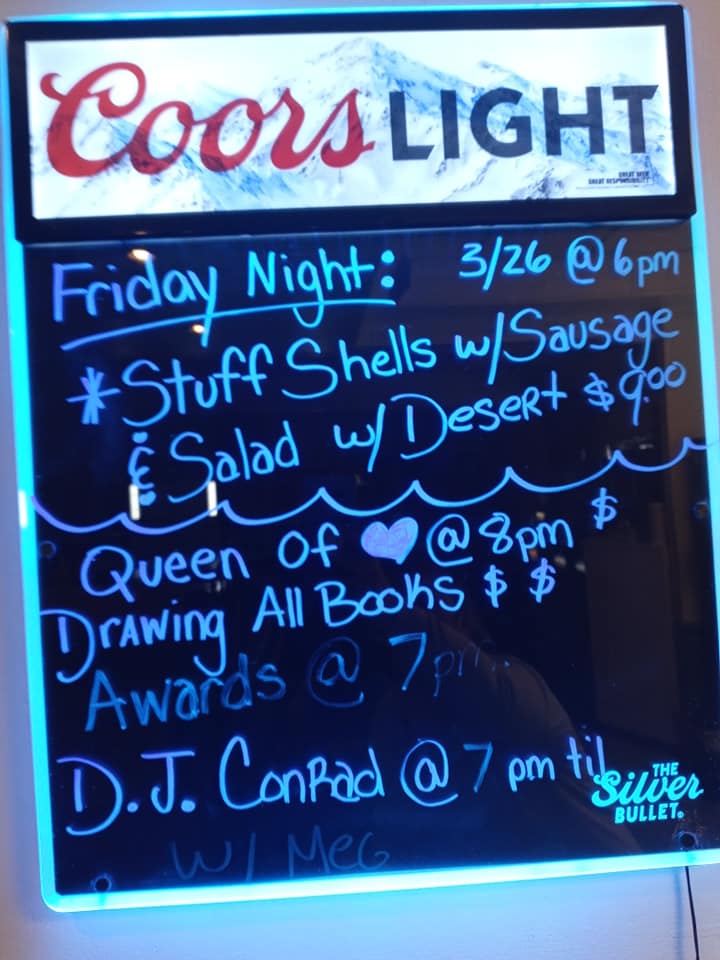 Coors LIGHT
GREAT BEER
GREAT RESPONSIBILITY
Friday Night: 3/26 @ 6pm
*Stuff Shells w/Sausage
& Salad w/Desert $9.00
Queen of ♥ @ 8pm $
Drawing All Books $ $
Awards @ 7pm
D.J. Conrad @ 7 pm til
THE
Silver
BULLET.
w/ MEG